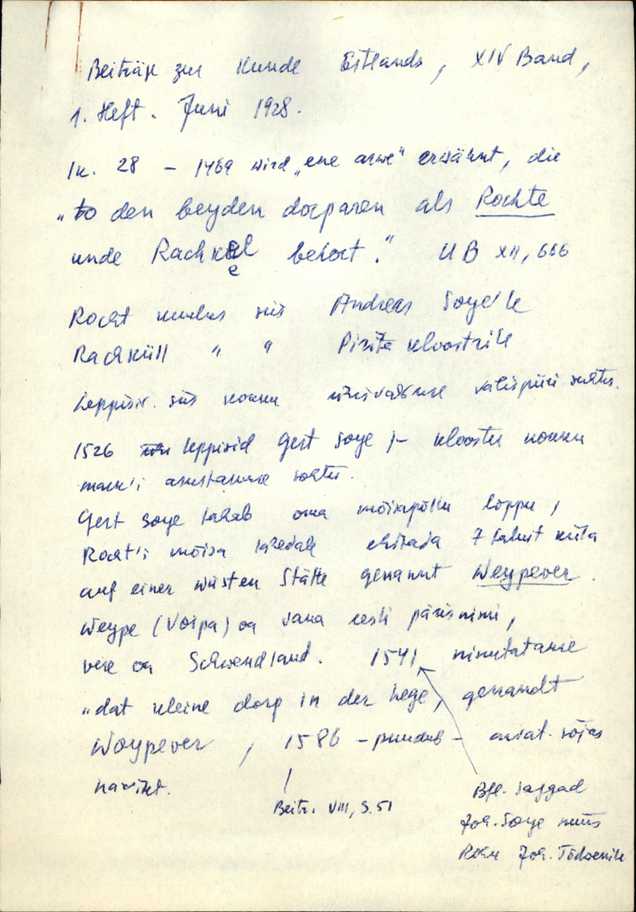 Beiträge zur Kunde Estlands, XIV Band,
1. Heft. Juni 1928.
lk. 28 – 1469 wird „ene arwe“ erwähnt, die
„to den beyden dorparen als Rochte
unde Rachkel behort.“ UB XII, 666
Rocht kuulus siis Andreas Soye'le
Rachküll " " Pirita kloostrile
Leppisid siis valispiiri suhtes.
1526 leppisid Gert Soye ja kloostri konvent
maade asustamise suhtes.
Gert Soye tahab oma mõisapõllu lõppu,
Rocht'i mõisa lähedale ehitada 7 talu
auf einer wüsten Stätte genannt Weypever.
Weype (Voipa) on vana eesti pärisnimi,
vere on Schwendland. 1541 nimetatakse
„dat kleine dorp in der hege, genandt
Woypever, 1586 – puudub – arvat. sõjas
hävinud.
Beitr. VIII, S. 51
Bfl. Saggad
Joh. Soye müüs
Joh. Tödwenile